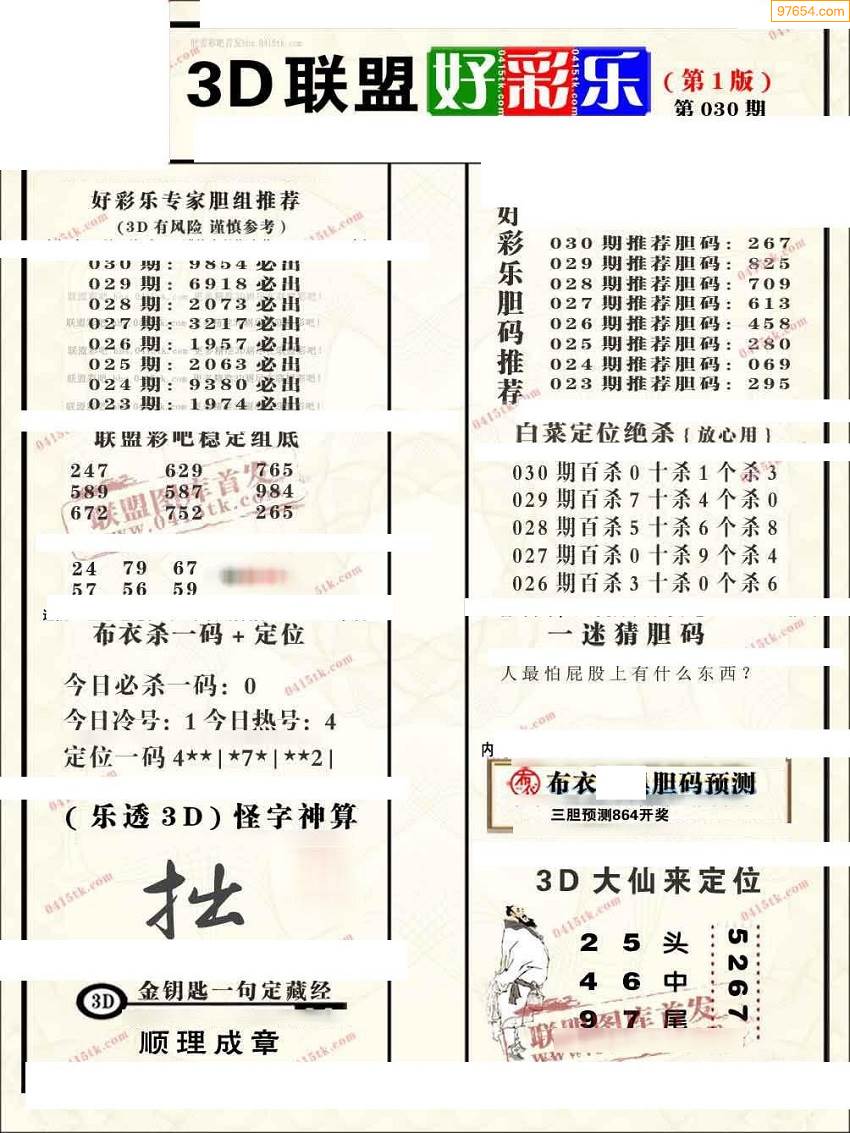 97654.com
联盟彩吧首发bbs.0415tk.com
3D联盟好彩乐(第1版)
0415tk.com 0415tk.com
第030期
好彩乐专家胆组推荐
(3D有风险 谨慎参考)
030期: 9854必出
029期: 6918必出
028期: 2073必出
027期: 3217必出
026期: 1957必出
025期: 2063必出
024期: 9380必出
023期: 1974必出
联盟彩吧稳定组底
247 629 765
589 587 984
672 752 265
联盟图库首发
www.0415tk.com
24 79 67
57 56 59
布衣杀一码+定位
今日必杀一码: 0
今日冷号: 1 今日热号: 4
定位一码 4**|*7*|**2|
(乐透3D)怪字神算
拙
3D 金钥匙一句定藏经
顺理成章
好彩乐胆码推荐
030期推荐胆码: 267
029期推荐胆码: 825
028期推荐胆码: 709
027期推荐胆码: 613
026期推荐胆码: 458
025期推荐胆码: 280
024期推荐胆码: 069
023期推荐胆码: 295
白菜定位绝杀{放心用}
030期百杀0十杀1个杀3
029期百杀7十杀4个杀0
028期百杀5十杀6个杀8
027期百杀0十杀9个杀4
026期百杀3十杀0个杀6
一迷猜胆码
人最怕屁股上有什么东西?
内
布衣 胆码预测
三胆预测864开奖
3D大仙来定位
2 5 头
4 6 中
9 7 尾
5267
联盟图库首发
0415tk.com